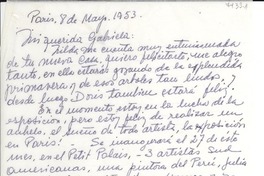 París, 8 de Mayo, 1953.
Mi querida Gabriela:
Zilda me cuenta muy entusiasmada
de tu nueva casa, quiero felicitarte, me alegra
tanto, en ella estarás gozando de la espléndida
primavera, y de esos árboles tan lindos. ¡
desde luego Doris también estará feliz!
En el momento estoy en la lucha de la
exposición, pero estoy feliz de realizar un
anhelo, el sueño de todo artista, la exposición
en París! Se inaugurará el 27 de este
mes, en el Petit Palais, - 3 artistas Sud
americanas, una pintora del Perú, Julia